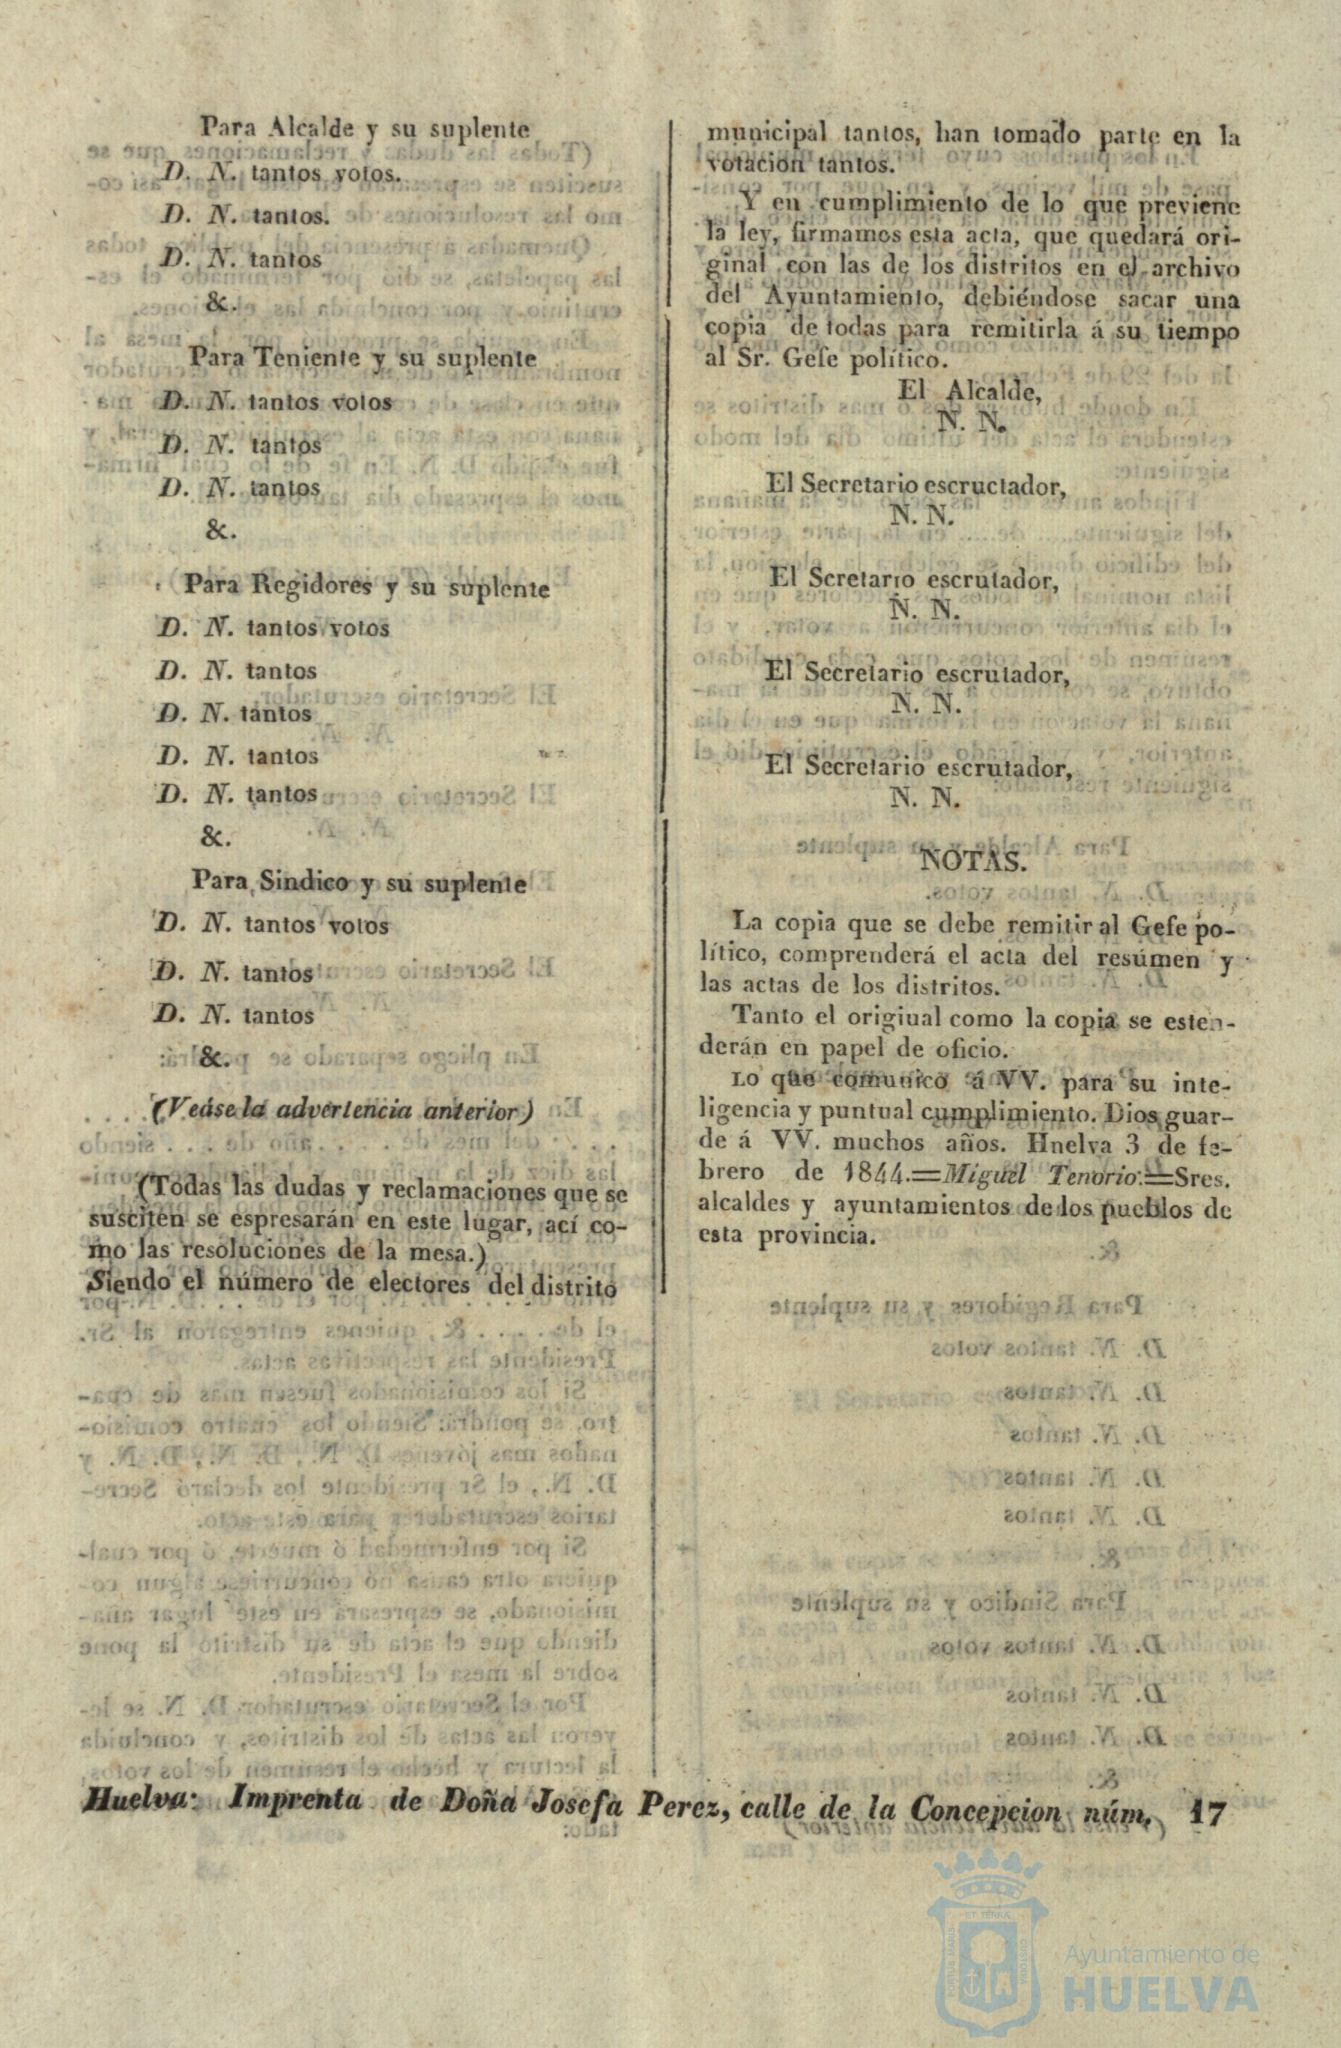 Para Alcalde y su suplente
D. N. tantos votos.
D. N. tantos.
D. N. tantos
&.
Para Teniente y su suplente
D. N. tantos votos
D. N. tantos
D. N. tantos
&.
Para Regidores y su suplente
D. N. tantos votos
D. N. tantos
D. N. tantos
D. N. tantos
D. N. tantos
&.
Para Sindico y su suplente
D. N. tantos votos
D. N. tantos
D. N. tantos
&.
(Veáse la advertencia anterior)
(Todas las dudas y reclamaciones que se
susciten se espresarán en este lugar, ací co-
mo las resoluciones de la mesa.)
Siendo el número de electores del distrito
municipal tantos, han tomado parte en la
votacion tantos.
Y en cumplimiento de lo que previene
la ley, firmamos esta acta, que quedará ori-
ginal con las de los distritos en el archivo
del Ayuntamiento, debiéndose sacar una
copia de todas para remitirla á su tiempo
al Sr. Gefe político.
El Alcalde,
N. N.
El Secretario escructador,
N. N.
El Scretario escrutador,
N. N.
El Secretario escrutador,
N. N.
El Secretario escrutador,
N. N.
NOTAS.
La copia que se debe remitir al Gefe po-
lítico, comprenderá el acta del resúmen y
las actas de los distritos.
Tanto el origiual como la copia se esten-
derán en papel de oficio.
LO que comunico á VV. para su inte-
ligencia y puntual cumplimiento. Dios guar-
de á VV. muchos años. Hnelva 3 de fe-
brero de 1844.=Miguel Tenorio.=Sres.
alcaldes y ayuntamientos de los pueblos de
esta provincia.
Huelva: Imprenta de Doña Josefa Perez, calle de la Concepcion núm. 17
Ayuntamiento de
HUELVA